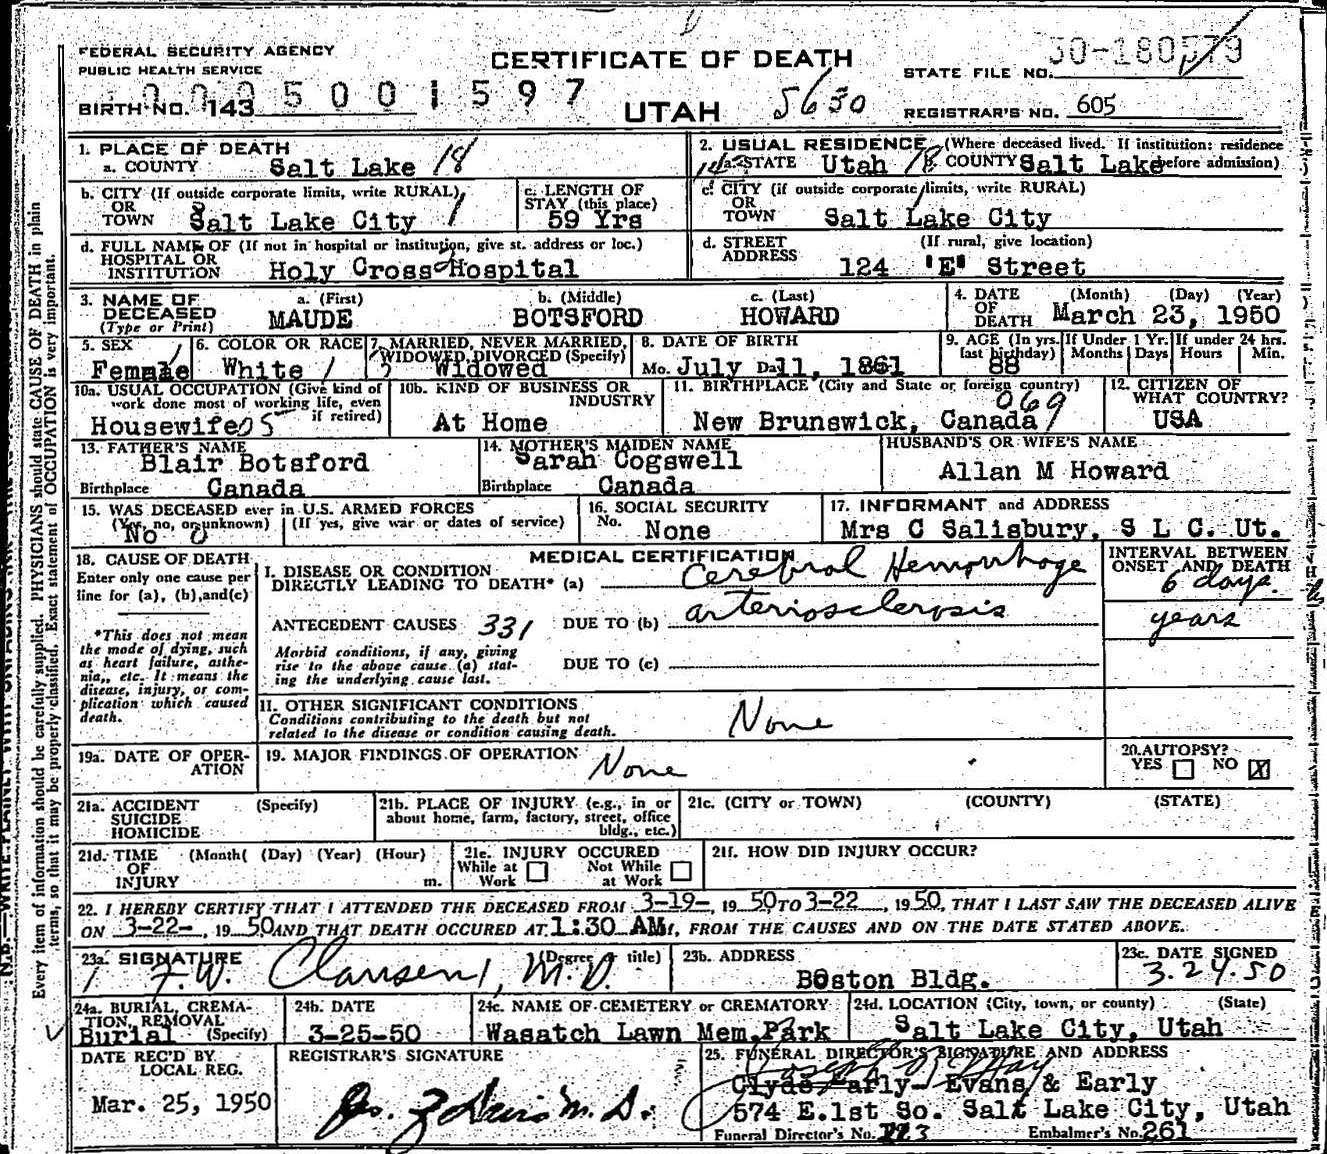 FEDERAL SECURITY AGENCY
PUBLIC HEALTH SERVICE
CERTIFICATE OF DEATH
STATE FILE NO.
BIRTH NO. 143
5001597
UTAH
5650
REGISTRAR'S NO. 605
1. PLACE OF DEATH
a. COUNTY Salt Lake 18
2. USUAL RESIDENCE (Where deceased lived. If institution: residence before admission)
a. STATE Utah 18 b. COUNTY Salt Lake
b. CITY (If outside corporate limits, write RURAL)
OR
TOWN Salt Lake City
c. LENGTH OF STAY (this place)
59 Yrs
c. CITY (if outside corporate limits, write RURAL)
OR
TOWN Salt Lake City
d. FULL NAME OF (If not in hospital or institution, give st. address or loc.)
HOSPITAL OR
INSTITUTION Holy Cross Hospital
d. STREET (If rural, give location)
ADDRESS 124 "E" Street
3. NAME OF DECEASED
(Type or Print)
a. (First) MAUDE
b. (Middle) BOTSFORD
c. (Last) HOWARD
4. DATE OF DEATH (Month) (Day) (Year)
March 23, 1950
5. SEX
Female
6. COLOR OR RACE
White
7. MARRIED, NEVER MARRIED, WIDOWED, DIVORCED (Specify)
Widowed
8. DATE OF BIRTH
Mo. July Da. 11, 1861
9. AGE (In yrs. last birthday)
88
If Under 1 Yr. Months Days
If under 24 hrs. Hours Min.
10a. USUAL OCCUPATION (Give kind of work done most of working life, even if retired)
Housewife 05
10b. KIND OF BUSINESS OR INDUSTRY
At Home
11. BIRTHPLACE (City and State or foreign country)
069
New Brunswick, Canada
12. CITIZEN OF WHAT COUNTRY?
USA
13. FATHER'S NAME
Blair Botsford
Birthplace Canada
14. MOTHER'S MAIDEN NAME
Sarah Cogswell
Birthplace Canada
HUSBAND'S OR WIFE'S NAME
Allan M Howard
15. WAS DECEASED ever in U.S. ARMED FORCES
(Yes, no, or unknown) (If yes, give war or dates of service)
No 0
16. SOCIAL SECURITY
No. None
17. INFORMANT and ADDRESS
Mrs C Salisbury, S L C. Ut.
18. CAUSE OF DEATH
Enter only one cause per line for (a), (b), and (c)
*This does not mean the mode of dying, such as heart failure, asthenia, etc. It means the disease, injury, or complication which caused death.
MEDICAL CERTIFICATION
I. DISEASE OR CONDITION
DIRECTLY LEADING TO DEATH* (a) Cerebral Hemorrhage
INTERVAL BETWEEN ONSET AND DEATH
6 days.
ANTECEDENT CAUSES 331 DUE TO (b) arteriosclerosis
years
Morbid conditions, if any, giving rise to the above cause (a) stating the underlying cause last.
DUE TO (c)
II. OTHER SIGNIFICANT CONDITIONS
Conditions contributing to the death but not related to the disease or condition causing death.
None
19a. DATE OF OPERATION
19. MAJOR FINDINGS OF OPERATION
None
20. AUTOPSY?
YES NO X
21a. ACCIDENT (Specify)
SUICIDE
HOMICIDE
21b. PLACE OF INJURY (e.g., in or about home, farm, factory, street, office bldg., etc.)
21c. (CITY or TOWN) (COUNTY) (STATE)
21d. TIME OF INJURY (Month( (Day) (Year) (Hour) m.
21e. INJURY OCCURED
While at Work
Not While at Work
21f. HOW DID INJURY OCCUR?
22. I HEREBY CERTIFY THAT I ATTENDED THE DECEASED FROM 3-19-, 1950 TO 3-22, 1950, THAT I LAST SAW THE DECEASED ALIVE
ON 3-22-, 1950 AND THAT DEATH OCCURED AT 1:30 AM, FROM THE CAUSES AND ON THE DATE STATED ABOVE.
23a. SIGNATURE (Degree or title)
F.W. Clausen, M.D.
23b. ADDRESS
Boston Bldg.
23c. DATE SIGNED
3.24.50
24a. BURIAL, CREMATION, REMOVAL (Specify)
Burial
24b. DATE
3-25-50
24c. NAME OF CEMETERY or CREMATORY
Wasatch Lawn Mem. Park
24d. LOCATION (City, town, or county) (State)
Salt Lake City, Utah
DATE REC'D BY LOCAL REG.
Mar. 25, 1950
REGISTRAR'S SIGNATURE
M.D.
25. FUNERAL DIRECTOR'S SIGNATURE AND ADDRESS
Clyde Early- Evans & Early
574 E. 1st So. Salt Lake City, Utah
Funeral Director's No.
Embalmer's No. 261
Every item of information should be carefully supplied. PHYSICIANS should state CAUSE OF DEATH in plain
terms, so that it may be properly classified. Exact statement of OCCUPATION is very important.